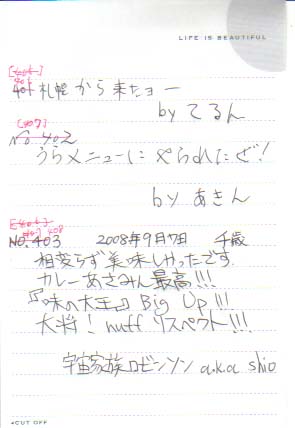 LIFE IS BEAUTIFUL
401
401 札幌から来たヨー
by てるん
[407]
No.402
うらメニューに やられたぞ!
by あきん
408
NO.403 2008年9月7日 千歳
相変らず美味しかったです
カレーあさみん最高!!!
『味の大王』 Big Up!!!
大将! nuff リスペクト!!!
宇宙家族ロビンソン a.k.a shio
◂CUT OFF